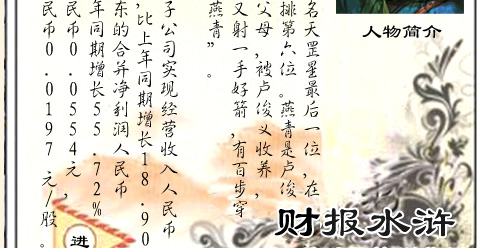 人物简介
名天罡星最后一位,在
排第六位。燕青是卢俊
父母,被卢俊义收养,
又射一手好箭,有百步穿
燕青”。
子公司实现经营收入人民币
,比上年同期增长18.90
东的合并净利润人民币
年同期增长55.72%
民币0.0554元,
民币0.0197元/股。
财报水浒
进